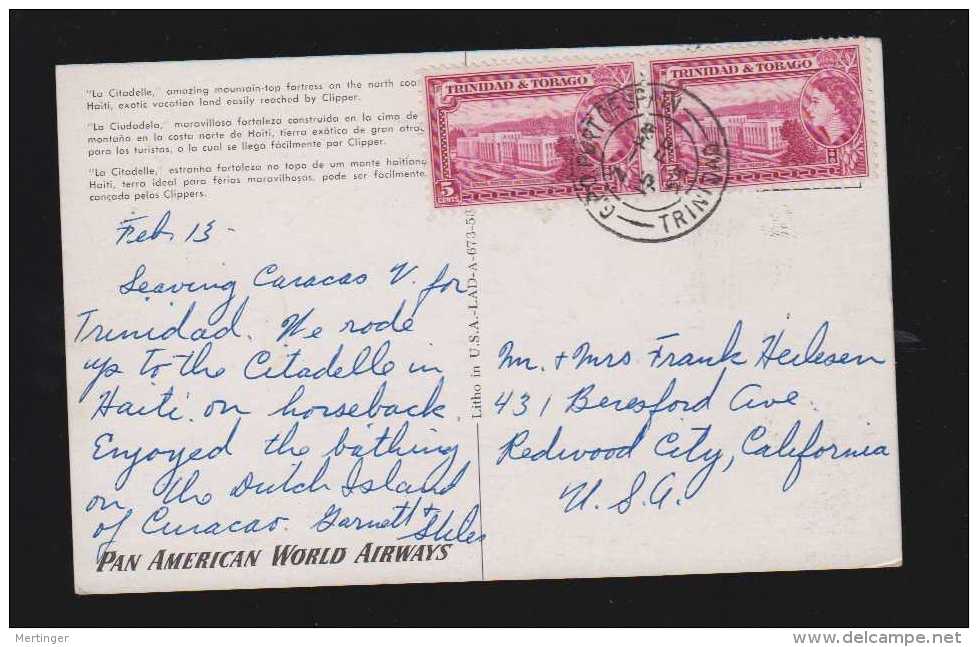 "La Citadelle," amazing mountain-top fortress on the north coa
Haiti, exotic vacation land easily reached by Clipper.
"La Ciudadela," maravillosa fortaleza construida en la cima de
montaña en la costa norte de Haiti, tierra exótica de gran atrac
para los turistas, a la cual se llega fácilmente por Clipper.
"La Citadelle," estranha fortaleza no topo de um monte haitiano
Haiti, terra ideal para férias maravilhosas, pode ser facilmente
cançada pelos Clippers.
TRINIDAD & TOBAGO
5
CENTS
TRINIDAD & TOBAGO
PORT OF SPAIN
TRINIDAD
Feb 13-
Leaving Caracas V. for
Trinidad. We rode
up to the Citadelle in
Haiti on horseback
Enjoyed the bathing
on the Dutch Island
of Curacao. Garnett +
Stiles
PAN AMERICAN WORLD AIRWAYS
Litho in U.S.A.-LAD-A-673-53
Mr. + Mrs Frank Heilesen
431 Beresford Ave.
Redwood City, California
U.S.A.
Mertinger
www.delcampe.net